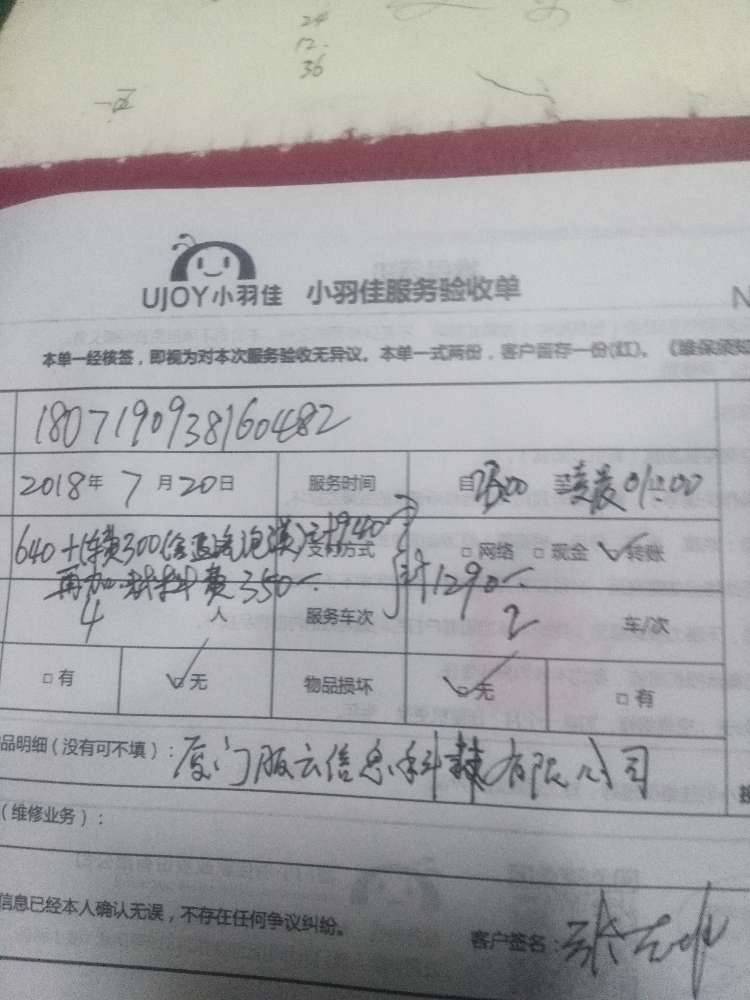 24
12.
36
UJOY小羽佳 小羽佳服务验收单
N
本单一经核签，即视为对本次服务验收无异议。本单一式两份，客户留存一份(红)。《维保须知
1807190938160482
2018年 7月20日 服务时间 自 23:00 至凌晨01:00
640+ 费300( 计940 支付方式 □网络 □现金 ✓转账
再加材料费350 计1290
4 人 服务车次 2 车/次
□有 ✓无 物品损坏 ✓无 □有
品明细（没有可不填）：厦门服云信息科技有限公司
（维修业务）：
信息已经本人确认无误，不存在任何争议纠纷。
客户签名：张